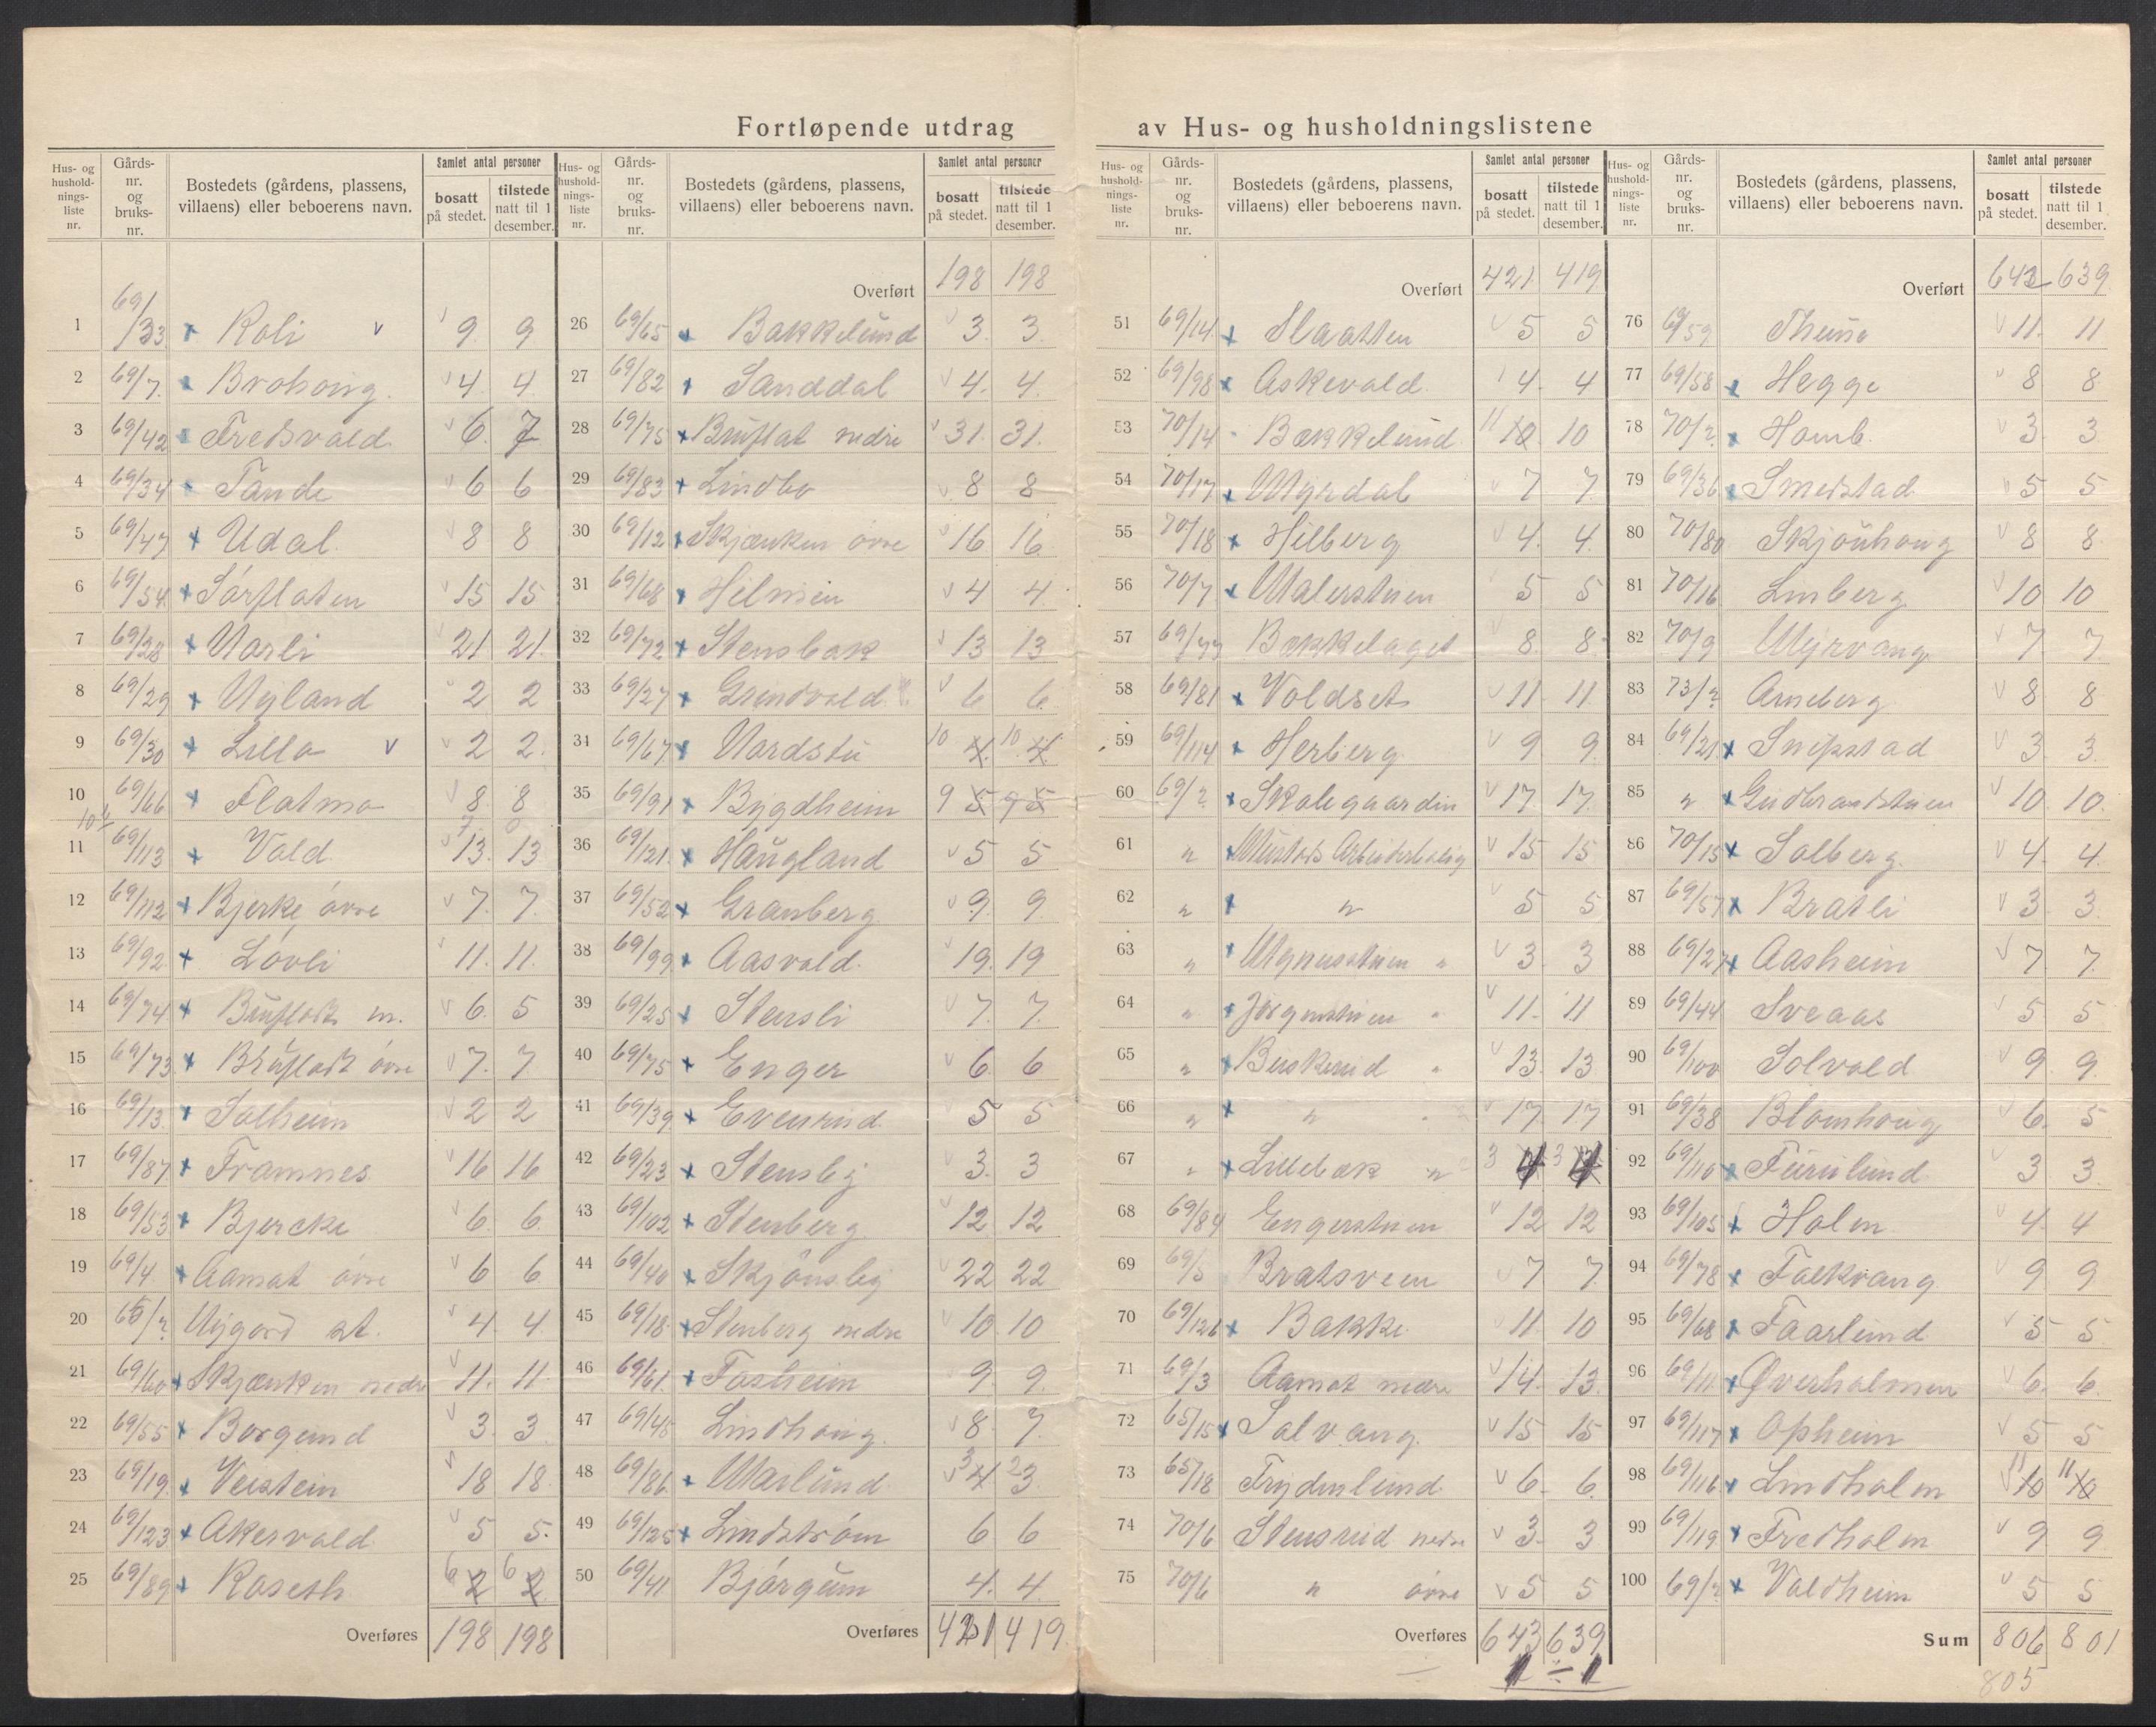 Fortløpende utdrag av Hus- og husholdningslistene
Hus- og hushold-nings-liste nr. Gårds-nr. og bruks-nr. Bostedets (gårdens, plassens, villaens) eller beboerens navn. Samlet antal personer bosatt på stedet. tilstede natt til 1 desember.
1 69/33 Roli 9 9
2 69/7 Brohoug 4 4
3 69/42 Fredsvold 6 7
4 69/34 Tande 6 6
5 69/47 Udal 8 8
6 69/54 Sørflaten 15 15
7 69/28 Narli 21 21
8 69/29 Nyland 2 2
9 69/30 Lilla 2 2
10 69/66 Flatmo 8 8
11 69/113 Vold 13 13
12 69/112 Bjerke øvre 7 7
13 69/92 Løvli 11 11
14 69/74 Bruflat m. 6 5
15 69/73 Bruflat øvre 7 7
16 69/13 Solheim 2 2
17 69/87 Framnes 16 16
18 69/53 Bjercke 6 6
19 69/4 Aamot øvre 6 6
20 Nygård st. 4 4
21 69/60 Skjænken nedre 11 11
22 69/55 Borgund 3 3
23 69/19 Veistein 18 18
24 69/123 Akersvold 5 5
25 69/89 Roseth 6 2 6 2
Overføres 198 198
Hus- og hushold-nings-liste nr. Gårds-nr. og bruks-nr. Bostedets (gårdens, plassens, villaens) eller beboerens navn. Samlet antal personer bosatt på stedet. tilstede natt til 1 desember.
Overført 198 198
26 69/65 Bakkelund 3 3
27 69/82 Sanddal 4 4
28 69/75 Bruflat nedre 31 31
29 69/83 Lindbo 8 8
30 69/12 Skjænken øvre 16 16
31 69/68 Hilmen 4 4
32 69/72 Stensbak 13 13
33 69/27 Grindvold 6 6
34 69/67 Nordstu 10 4 10 4
35 69/91 Bygdheim 9 5 9 5
36 69/121 Haugland 5 5
37 69/52 Granberg 9 9
38 69/99 Aasvold 19 19
39 69/25 Stensli 7 7
40 69/75 Enger 6 6
41 69/39 Evenrud 5 5
42 69/23 Stensby 3 3
43 69/102 Stenberg 12 12
44 69/40 Skjønsby 22 22
45 69/18 Stenberg nedre 10 10
46 69/61 Fosheim 9 9
47 69/45 Lindhoug 8 7
48 69/86 Marlund 3 4 2 3
49 69/125 Lindstrøm 6 6
50 69/41 Bjørgum 4 4
Overføres 421 419
Hus- og hushold-nings-liste nr. Gårds-nr. og bruks-nr. Bostedets (gårdens, plassens, villaens) eller beboerens navn. Samlet antal personer bosatt på stedet. tilstede natt til 1 desember.
Overført 421 419
51 69/14 Slaatten 5 5
52 69/98 Askevold 4 4
53 70/14 Bækkelund 11 10 10
54 70/17 Myrdal 7 7
55 70/18 Hilberg 4 4
56 70/7 Malerstuen 5 5
57 69/77 Bækkelaget 8 8
58 69/81 Voldset 11 11
59 69/114 Herberg 9 9
60 69/2 Skolegaarden 17 17
61 " Mustads Arbeiderbolig 15 15
62 " " 5 5
63 " 3 3
64 " Jørgenstuen " 11 11
65 " Buskerud " 13 13
66 " " " 17 17
67 " Lillebæk " 3 4 3 4
68 69/84 Engerstuen 12 12
69 69/5 Bratsveen 7 7
70 69/126 Bakke 11 10
71 69/3 Aamot nedre 14 13
72 65/15 Solvang 15 15
73 65/18 Frydenlund 6 6
74 70/6 Stensrud nedre 3 3
75 70/6 " øvre 5 5
Overføres 643 639
1 – 1
Hus- og hushold-nings-liste nr. Gårds-nr. og bruks-nr. Bostedets (gårdens, plassens, villaens) eller beboerens navn. Samlet antal personer bosatt på stedet. tilstede natt til 1 desember.
Overført 642 639
76 69/59 Thune 11 11
77 69/58 Hegge 8 8
78 70/2 Homb 3 3
79 69/36 Smedstad 5 5
80 70/80 Skjønhoug 8 8
81 70/16 Linberg 10 10
82 70/9 Myrvang 7 7
83 73/2 Arneberg 8 8
84 69/21 Snipstad 3 3
85 " Gudbrandstuen 10 10
86 70/15 Solberg 4 4
87 69/57 Bratli 3 3
88 69/27 Aasheim 7 7
89 69/44 Sveaas 5 5
90 69/100 Solvold 9 9
91 69/38 Blomhoug 6 5
92 69/110 Furulund 3 3
93 69/105 Holm 4 4
94 69/78 Folkvang 9 9
95 69/68 Faarlund 5 5
96 69/11 Øverholmen 6 6
97 69/117 Opheim 5 5
98 69/116 Lindholm 11 10 11 10
99 69/119 Fredholm 9 9
100 69/2 Voldheim 5 5
Sum 806 801
805